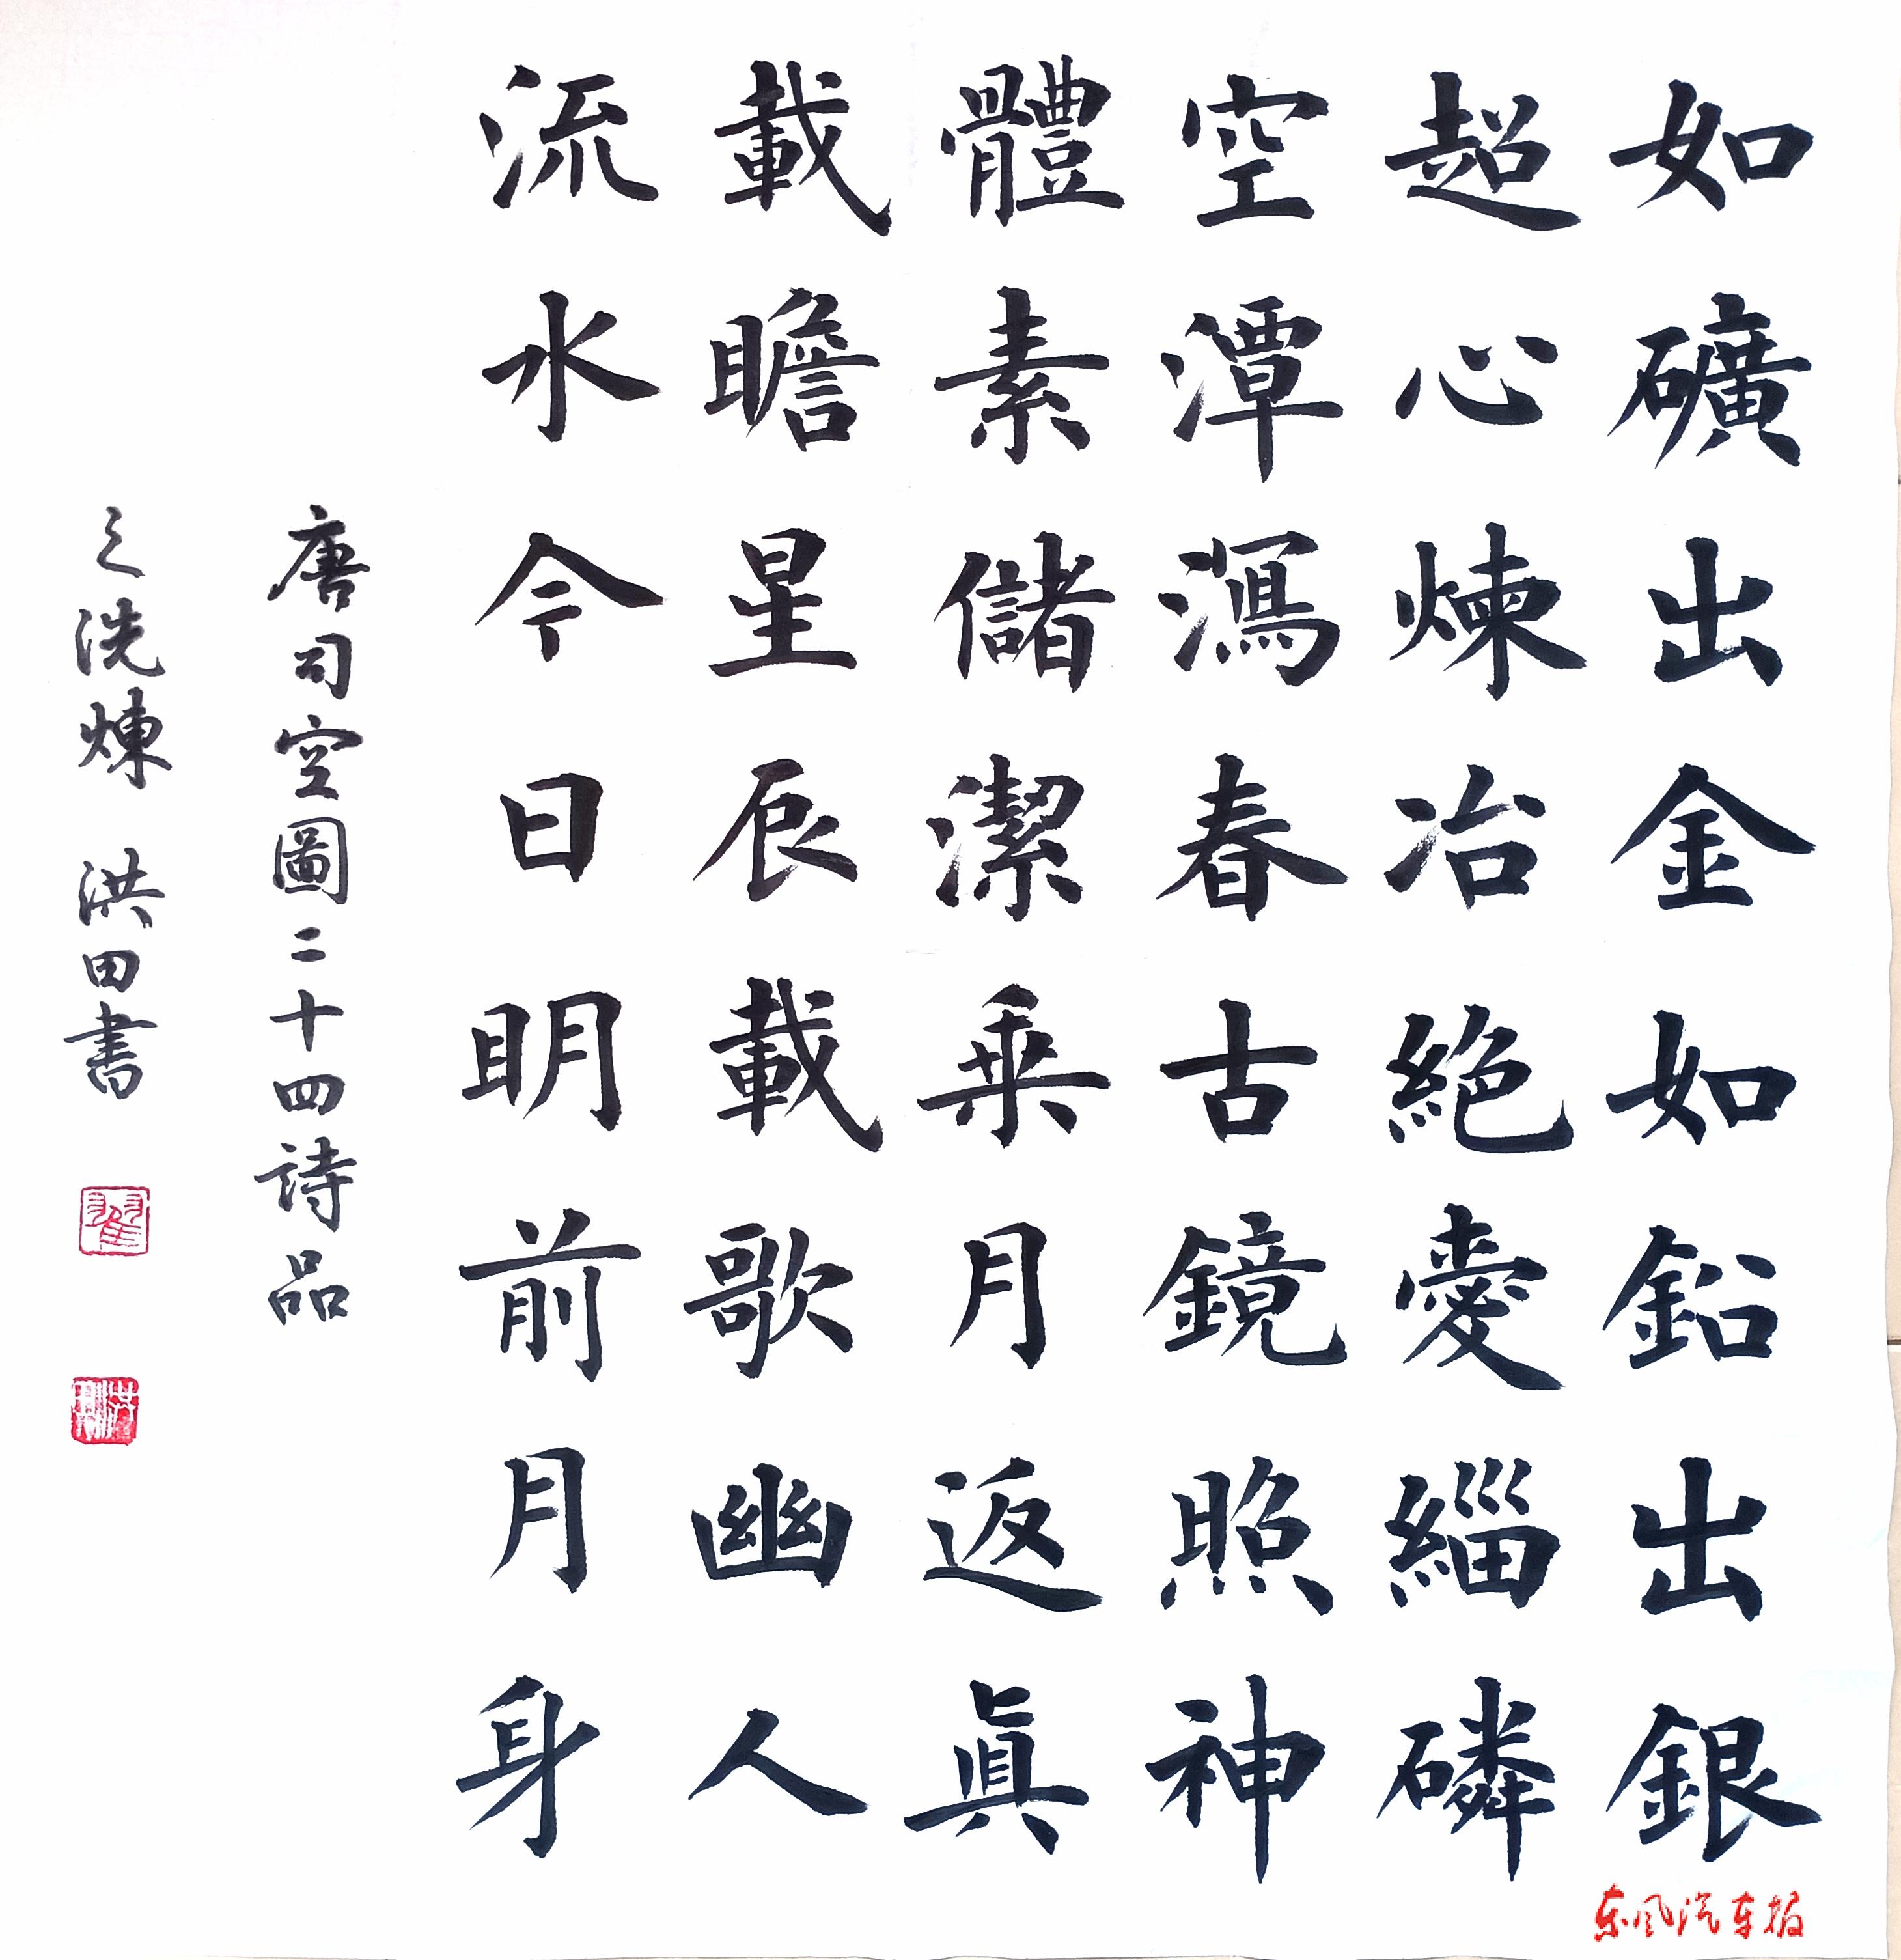 如礦出金如鉛出銀
超心煉冶絶愛緇磷
空潭瀉春古鏡照神
體素儲潔乗月返眞
載瞻星辰載歌幽人
流水今日明月前身
唐司空圖二十四詩品
之洗煉 洪田書
翟
东风汽车报